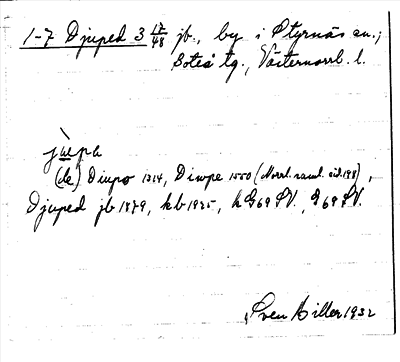 1-7 Djuped 3 17/48 jb., by i Styrnäs sn.;
Boteå tg., Västernorrl. l.
jùpa
(de) Diupo 1314, Diwpe 1550 (Norrl. saml. sid. 198),
Djuped jb 1879, kb 1935, hG 69 SV., G 69 SV.
Sven Hiller 1932